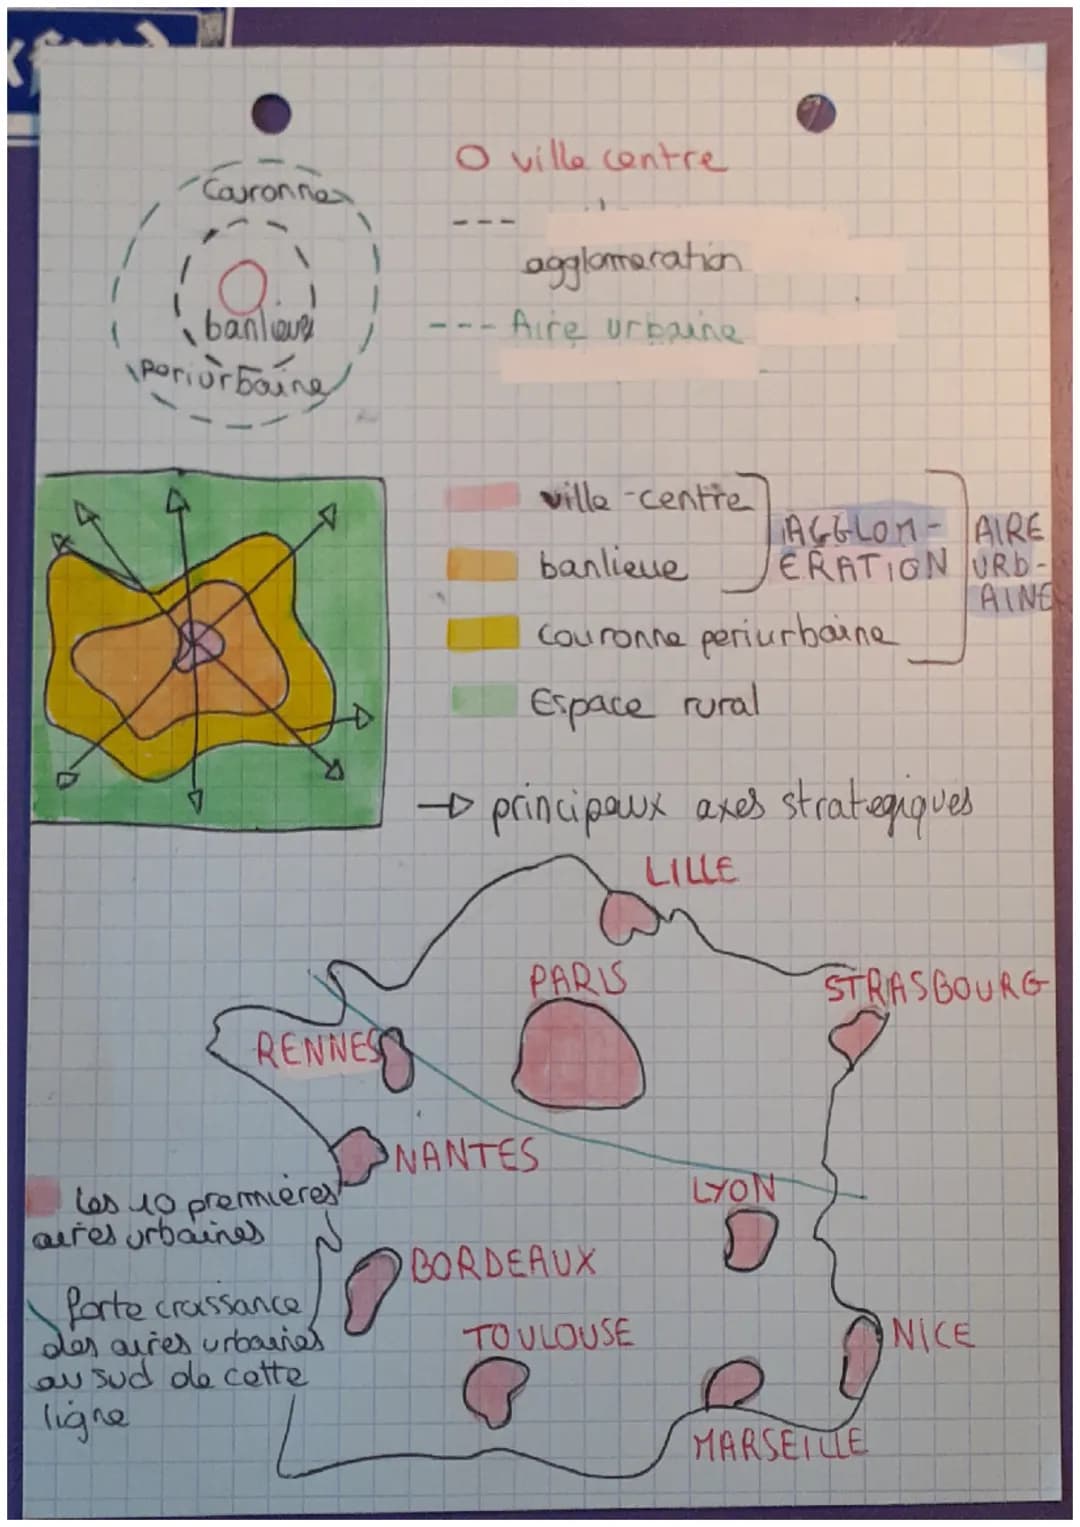 O ville centre
Couronne
agglomeration
banlieue
--- Aire urbaine
periurbaine
ville-centre
AGGLOM-
ERATION
AIRE
URB-
AINE
banlieue
couronne periurbaine
Espace rural
principaux axes strategiques
LILLE
PARIS
STRASBOURG
RENNES
NANTES
LYON
Les 10 premières
aires urbaines
BORDEAUX
forte croissance
des aires urbaines
au sud de cette
ligne
TOULOUSE
NICE
MARSEILLE